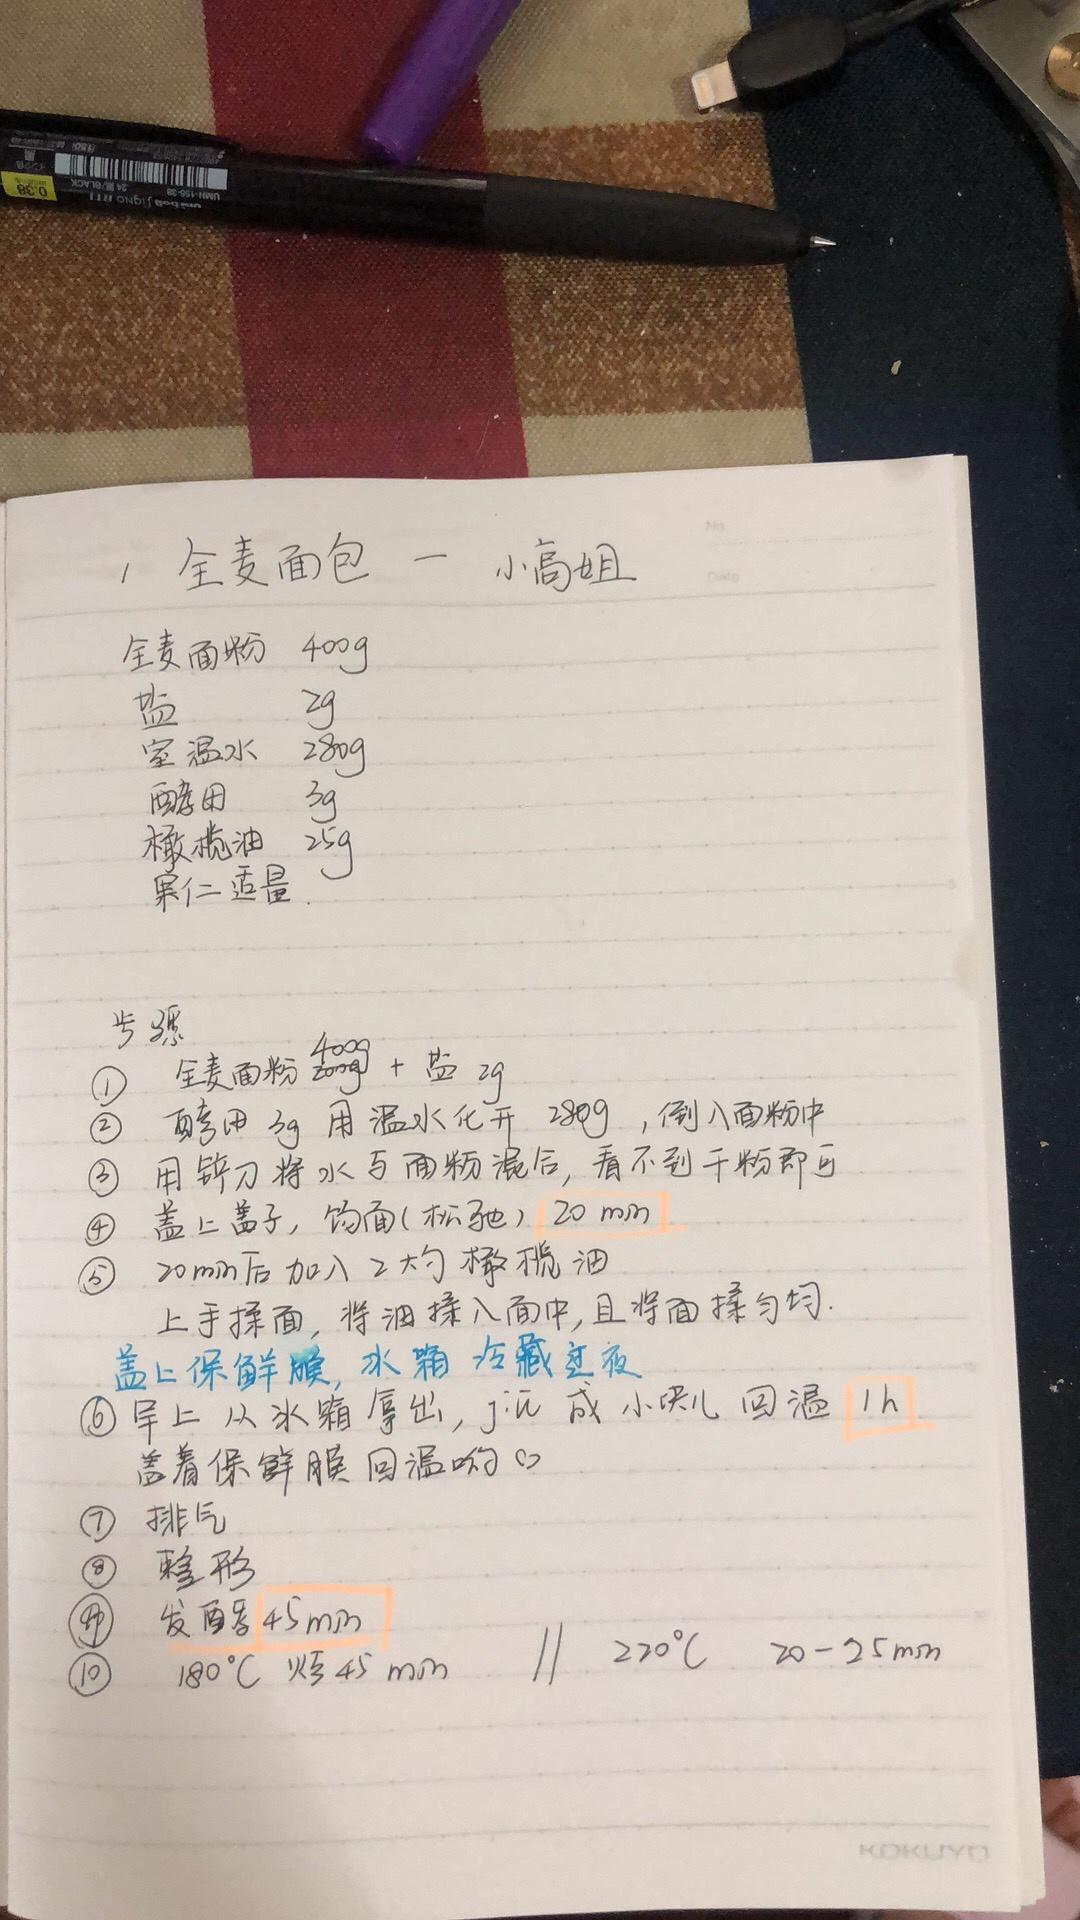 0.38
UMN-155-38
24 黒/BLACK
uni-ball Signo RT1
No.
Date
1 全麦面包 — 小高姐
全麦面粉 400g
盐 2g
室温水 280g
酵母 3g
橄榄油 25g
果仁适量.
步骤
① 全麦面粉 400g + 盐 2g
② 酵母 3g 用温水化开 280g，倒入面粉中
③ 用铲刀将水与面粉混合，看不到干粉即可
④ 盖上盖子，饧面（松弛） 20 min
⑤ 20min后加入2大勺橄榄油
上手揉面，将油揉入面中，且将面揉匀均.
盖上保鲜膜，冰箱冷藏过夜
⑥ 早上从冰箱拿出，成小块儿 回温 1h
盖着保鲜膜回温哟
⑦ 排气
⑧ 整形
⑨ 发酵 45min
⑩ 180°C 烤45 min // 220°C 20-25min
KOKUYO